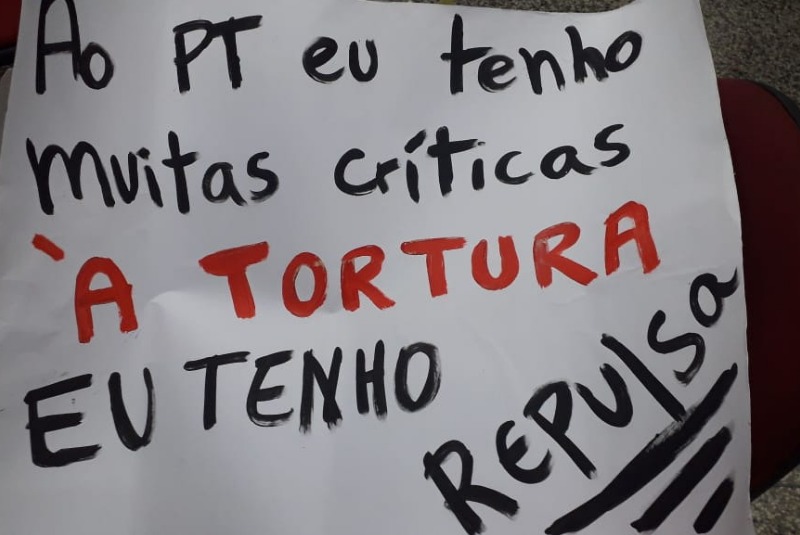 Ao PT eu tenho
muitas críticas
À TORTURA
EU TENHO
REPULSA